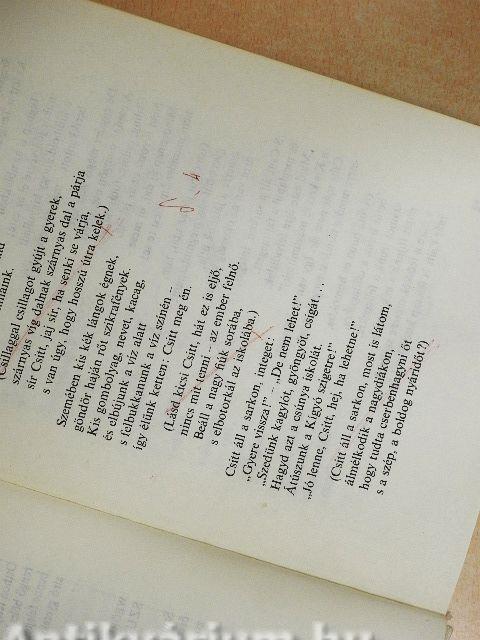 (Csillaggal csillagot gyújt a gyerek,
szárnyas víg dalnak szárnyas dal a párja
sír Csitt, jaj sír, ha senki se várja,
s van úgy, hogy hosszú útra kelek.)
Szemében kis kék lángok égnek,
göndör haján rőt szikrafények.
Kis gombolyag, nevet, kacag,
és elbújunk a víz alatt
s felbukkanunk a víz színén –
így élünk ketten: Csitt meg én.
(Lásd kicsi Csitt, hát ez is eljő,
nincs mit tenni – az ember felnő.
Beáll a nagy nyúk sorába,
s elbotorkál az iskolába.)
Csitt áll a sarkon, integet:
„Gyere vissza!" – „De nem lehet!"
„Szedünk kagylót, gyöngyöt, csigát…
Hagyd azt a csúnya iskolát.
Átúszunk a Kígyó szigetre!"
„Jó lenne, Csitt, hej, ha lehetne!"
(Csitt áll a sarkon, most is látom,
álmélkodik a nagydiákon,
hogy tudta cserbenhagyni őt
s a szép, a boldog nyáridőt?)
Antikvárium.hu